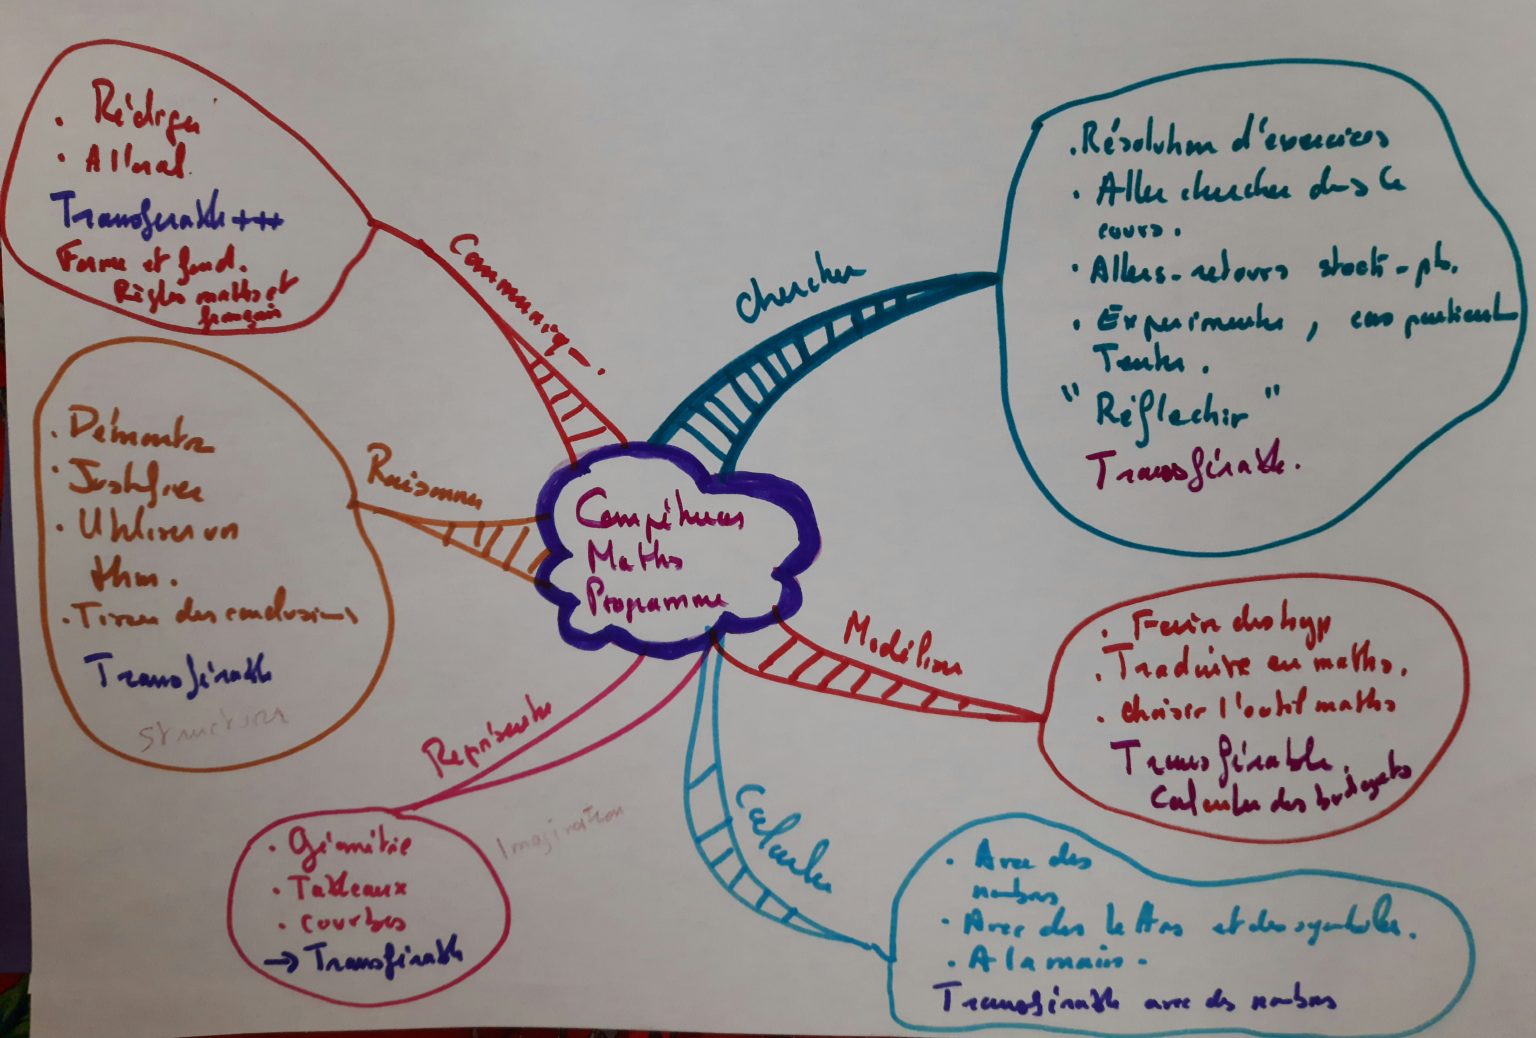 Compétences
Maths
Programme
Communiq-.
. Rédiger
. A l'oral.
Transférable +++
Forme et fond.
Règles maths et
français
Chercher
. Résolution d'exercices
. Aller chercher dans le
cours.
. Allers-retours stock-pb.
. Experimenter, cas particuliers
Tenter.
"Réflechir"
Transférable.
Raisonner
. Démontrer
. Justifier
. Utiliser un
thm.
. Tirer des conclusions
Transférable
Structurer
Modéliser
. Faire des hyp
. Traduire en maths.
. choisir l'outil maths
Transférable.
Calculer des budgets
Représenter
. Géométrie
. Tableaux
. courbes
→ Transférable
Imagination
Calculer
. Avec des
nombres
. Avec des lettres et des symboles.
. A la main -
Transférable avec des nombres